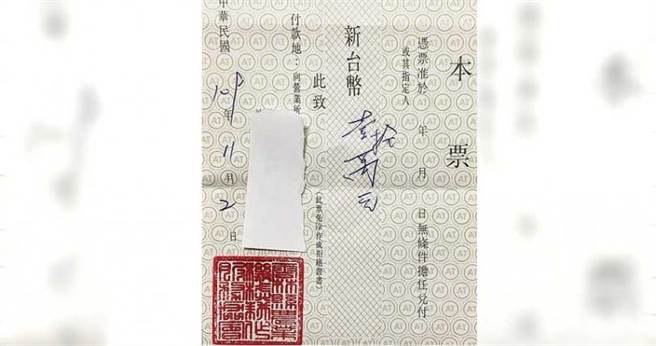 本票
憑票准於 年 月 日無條件擔任兌付
或其指定人
新台幣 壹拾萬元
此致
（此票免除作成拒絕證書）
付款地：向營業所
中華民國 109年 11月 2日